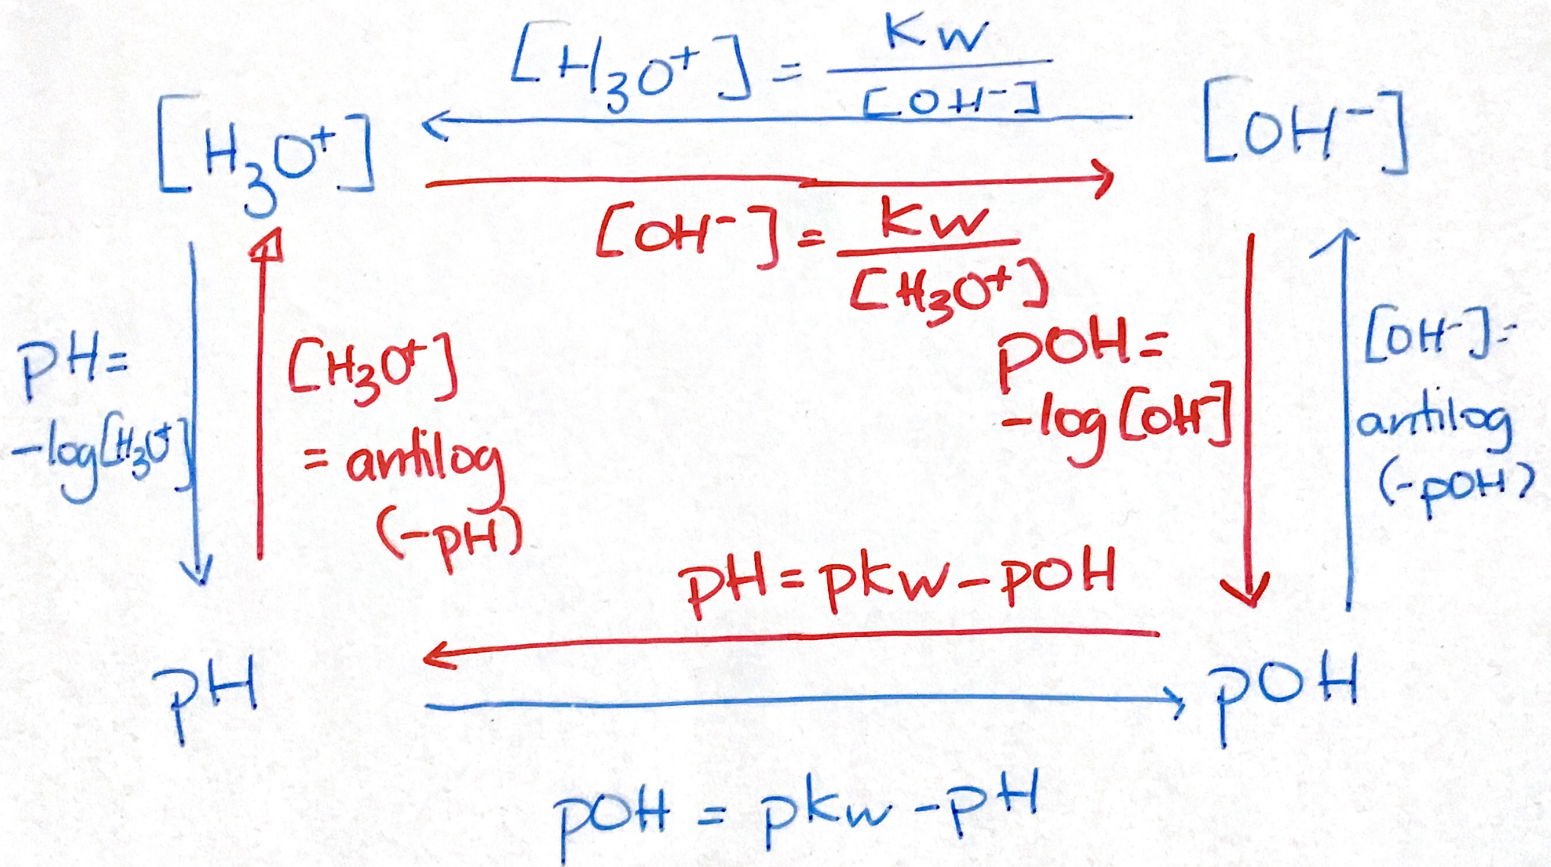 [H₃O⁺] = Kw / [OH⁻]
[H₃O⁺]
[OH⁻]
[OH⁻] = Kw / [H₃O⁺]
pH =
-log[H₃O⁺]
[H₃O⁺]
= antilog
(-pH)
pOH =
-log [OH⁻]
[OH⁻] =
antilog
(-pOH)
pH = pKw - pOH
pH
pOH
pOH = pKw - pH